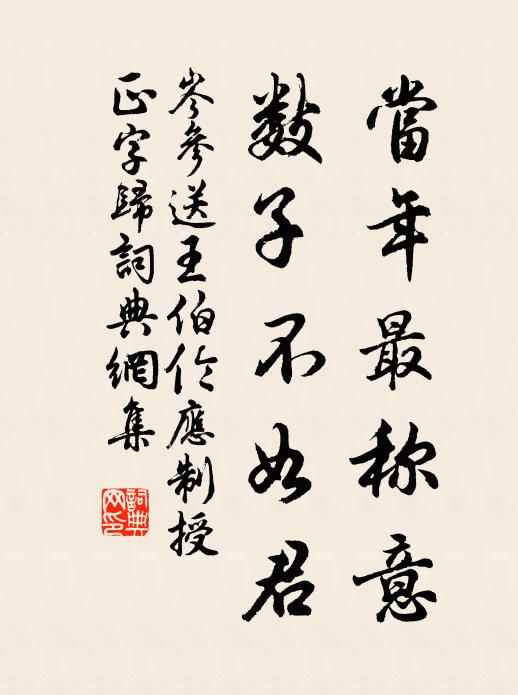 當年最称意
數子不如君
岑參送王伯伦應制授
正字歸詞典網集
詞典网印